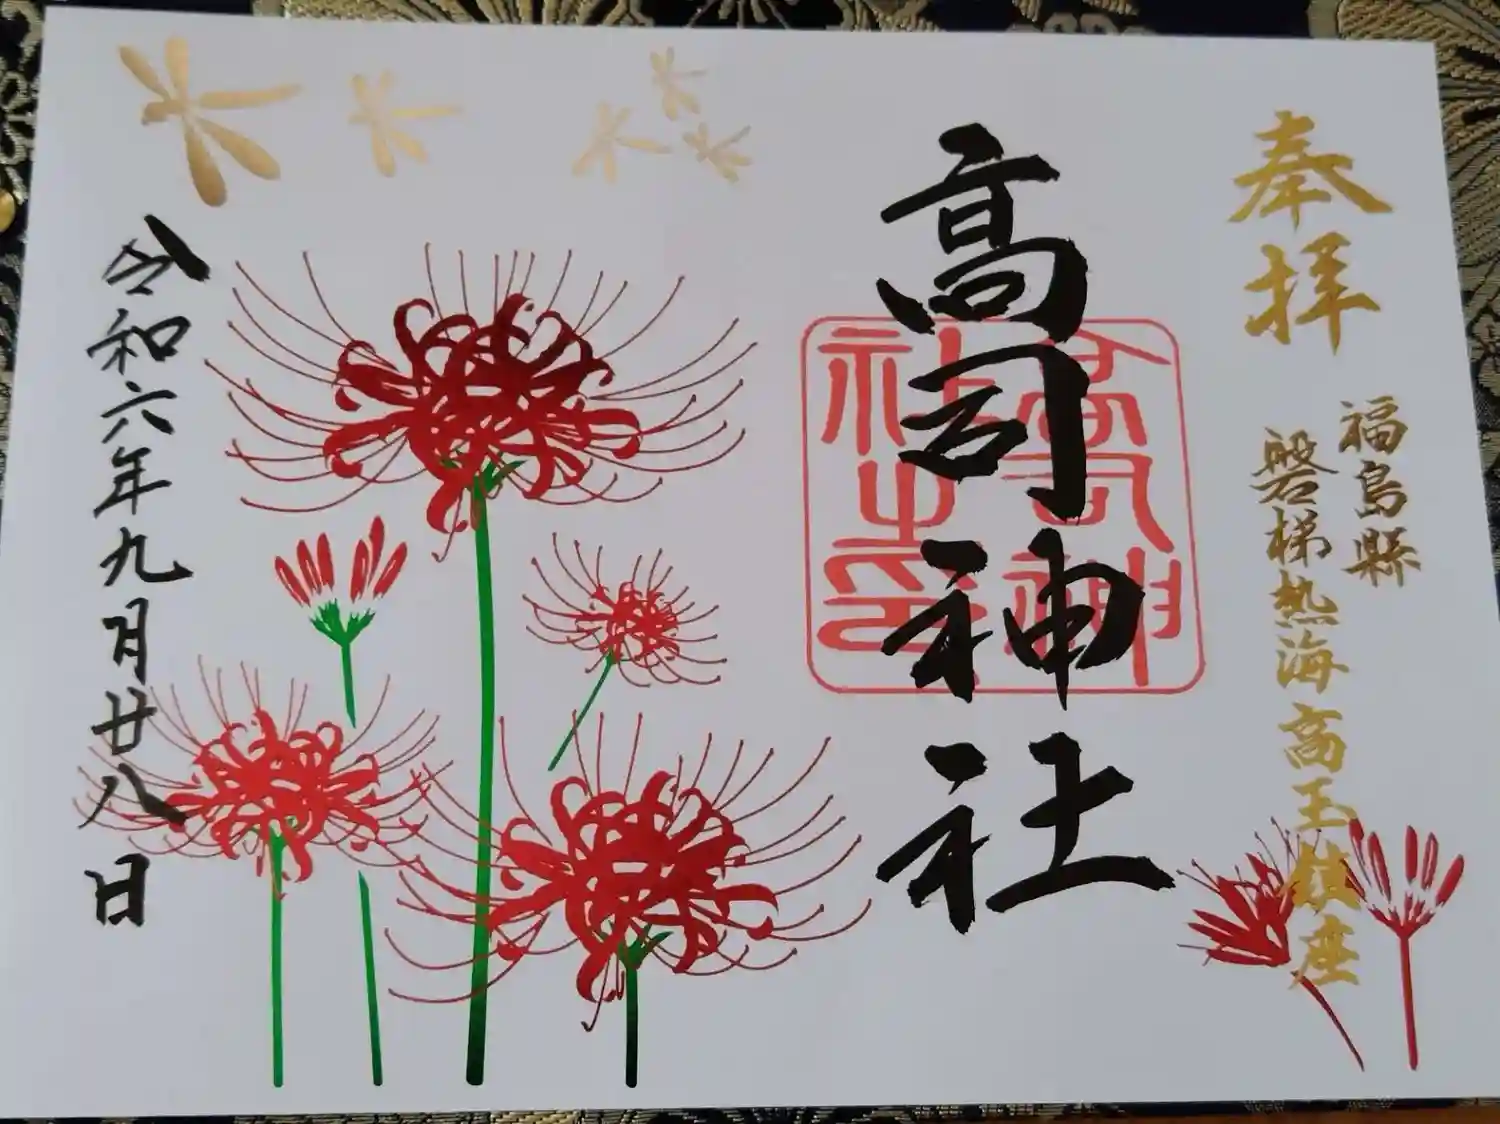 奉拝
福島縣
磐梯熱海高玉鎮座
高司神社
高司神社之印
令和六年九月廿八日